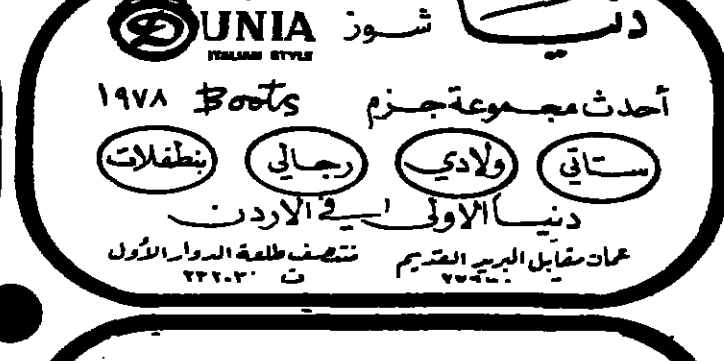 دنيا شوز DUNIA
ITALIAN STYLE
أحدث مجموعة جزم Boots ١٩٧٨
ستاتي ولادي رجالي بنطفلات
دنيا الاولى في الاردن
عمان مقابل البريد القديم منتصف طلعة الدوار الأول
ت